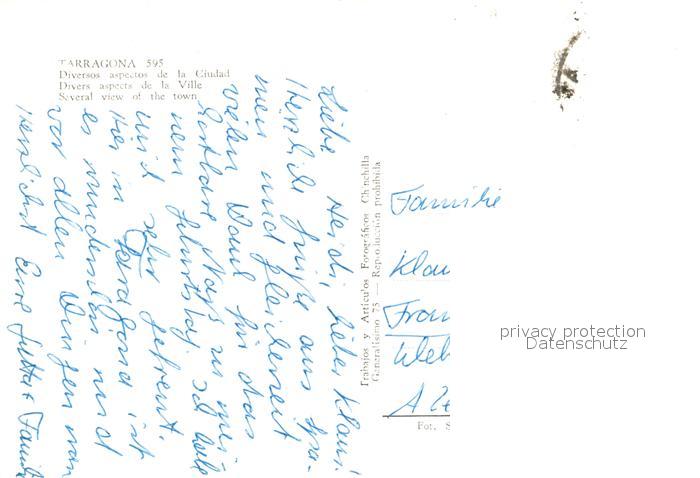 TARRAGONA 595
Diversos aspectos de la Ciudad
Divers aspects de la Ville
Several view of the town
Liebe Heidi, lieber Klaus!
Herzliche Grüße aus Spa-
nien und gleichzeit
vielen Dank für das
nem Geburtstag. Ich habe
mich sehr gefreut.
Hier in Tarragona ist
es wunderschön und
vor allem
Herzlichst Eure Familie
Trabajos y Artículos Fotográficos Chinchilla
Generalísimo 75 - Reproducción prohibida
Familie
Klau
A
Fot.
privacy protection
Datenschutz